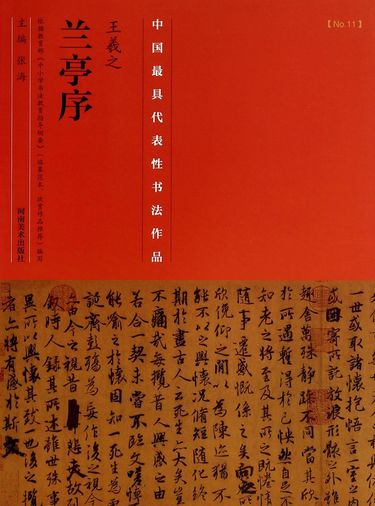 【No.11】
中国最具代表性书法作品
王羲之
兰亭序
依据教育部《中小学书法教育指导纲要》(临摹范本、欣赏作品推荐)编写
主编 张海
河南美术出版社
一世或取諸懷抱悟言一室之內
或因寄所託放浪形骸之外雖
趣舍萬殊靜躁不同當其欣
於所遇蹔得於己怏然自足不
知老之將至及其所之既惓情
隨事遷感慨係之矣向之所
欣俛仰之閒以為陳迹猶不
能不以之興懷況脩短隨化終
期於盡古人云死生亦大矣豈
不痛哉每攬昔人興感之由
若合一契未嘗不臨文嗟悼不
能喻之於懷固知一死生為虛
誕齊彭殤為妄作後之視今
亦由今之視昔悲夫故列
敘時人錄其所述雖世殊事
異所以興懷其致一也後之攬
者亦將有感於斯文